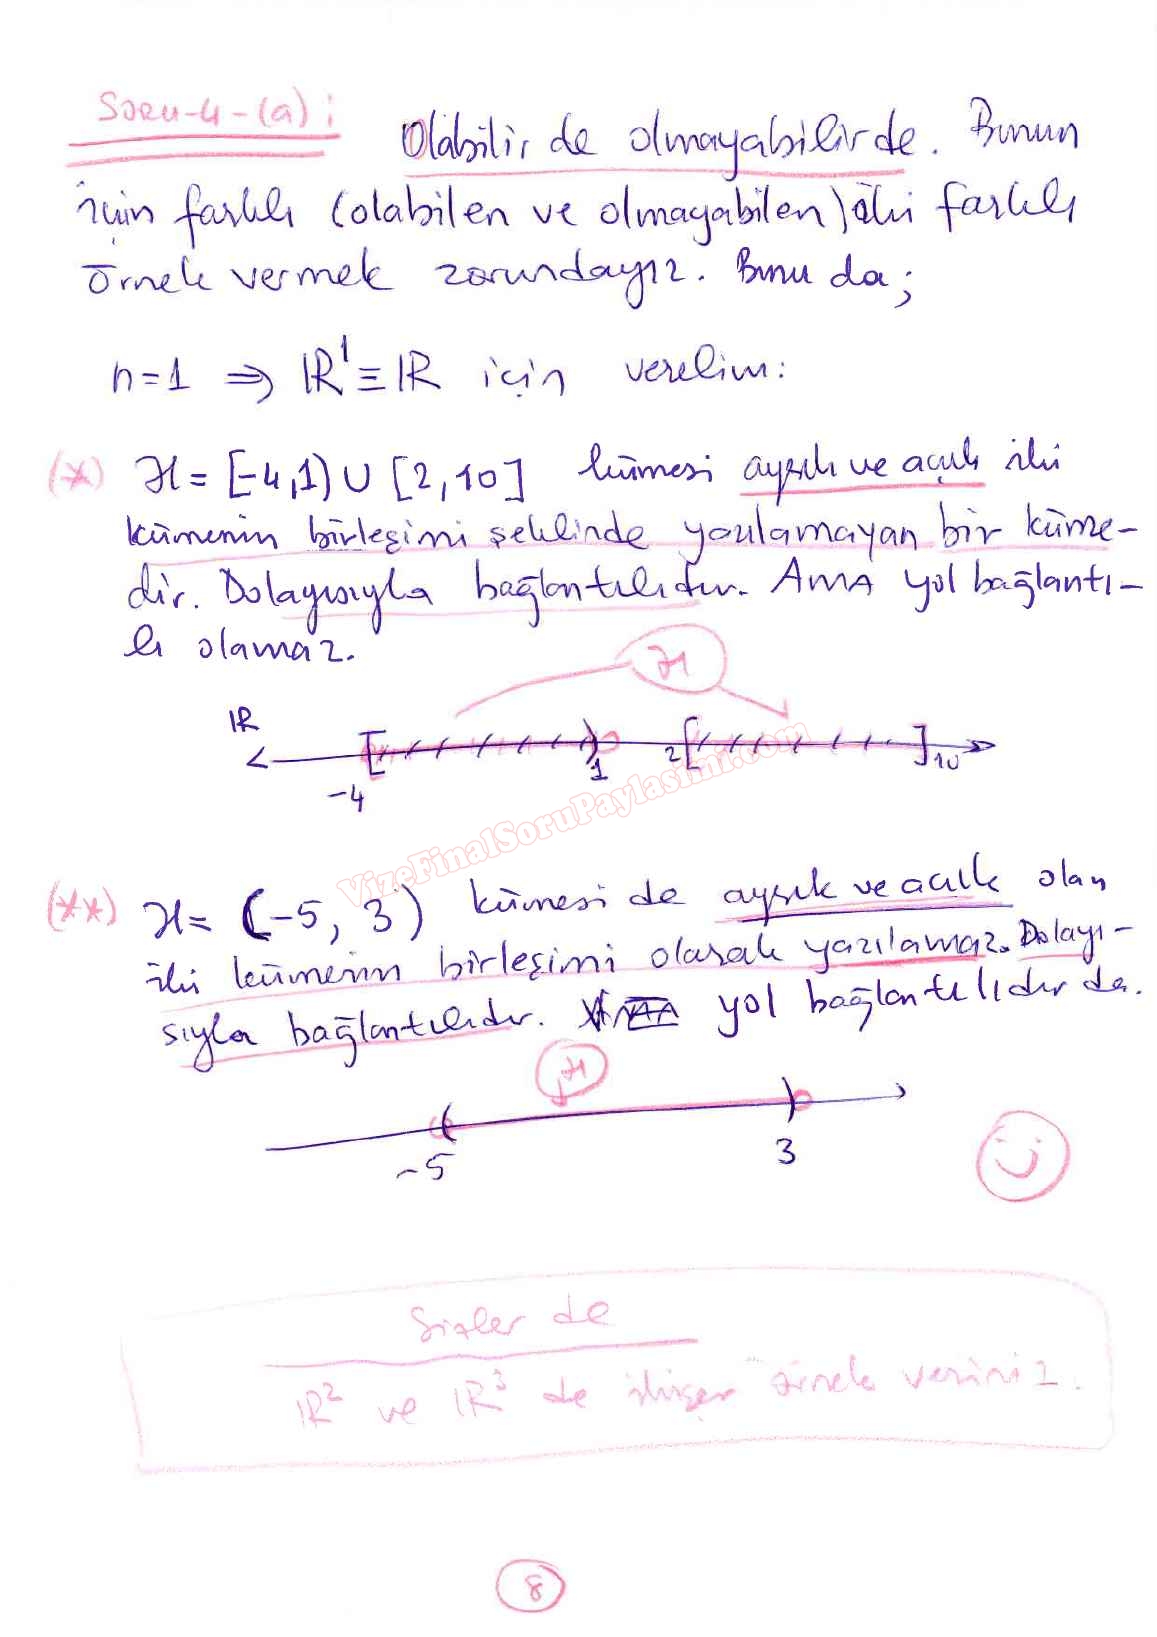 Soru-4-(a):
Olabilir de olmayabilirde. Bunun
için farklı (olabilen ve olmayabilen) iki farklı
örnek vermek zorundayız. Bunu da;
n=1 ⇒ ℝ¹≡ℝ için verelim:
(*) H = [-4,1) ∪ [2,10] kümesi ayrık ve açık iki
kümenin birleşimi şeklinde yazılamayan bir küme-
dir. Dolayısıyla bağlantılıdır. AMA yol bağlantı-
lı olamaz.
H
ℝ
-4 1 2 10
(**) H = (-5, 3) kümesi de ayrık ve açık olan
iki kümenin birleşimi olarak yazılamaz. Dolayı-
sıyla bağlantılıdır. yol bağlantılıdır da.
H
-5 3
Sizler de
ℝ² ve ℝ³ de ikişer örnek veriniz.
8
VizeFinalSoruPaylasimi.com